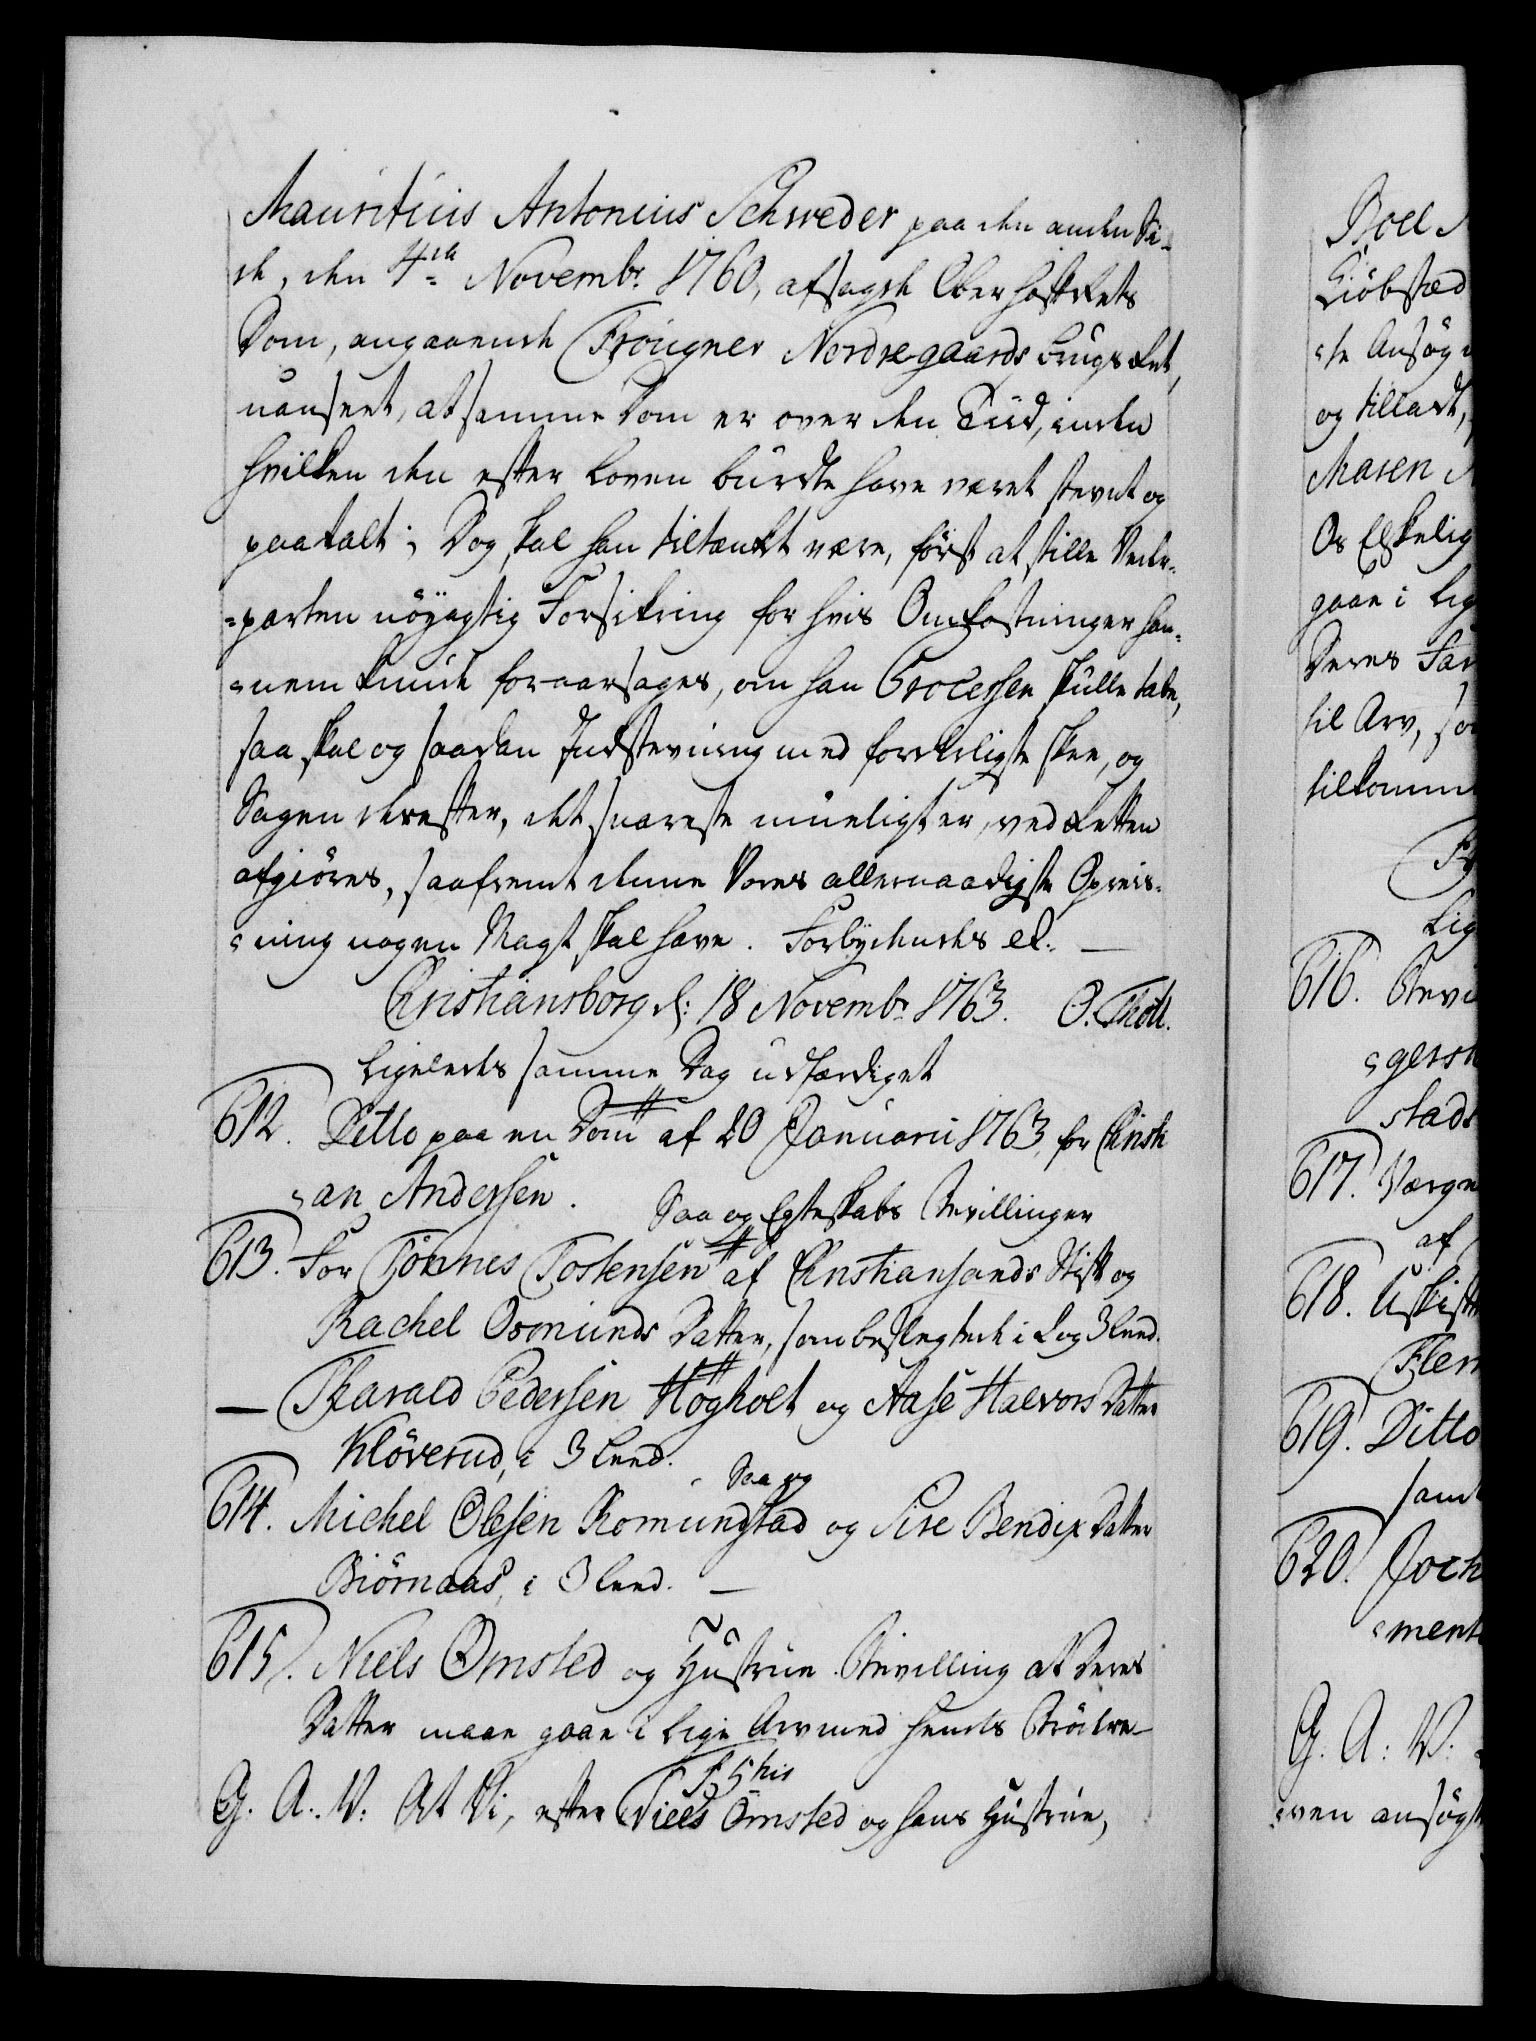 Mauritius Antonius Schweder paa den anden Si-
de, den 4de Novembr. 1760, afsagde Oberhofrets
Dom, angaaende Frøugner Nordregaards brugs Ret,
uanseet, at samme Dom er over den Tiid, inden
hvilken den efter Loven burdte have været stevnt og
paatalt; Dog skal han tiltænkt være, først at stille Veder-
=parten nöyagtig Forsikring for hvis Omkostninger han-
=nem kunde foraarsages, om han Processen skulle tabe,
saa skal og saadan Indstevning med forderligste skee, og
Sagen derefter, det snareste mueligt er, ved Retten
afgiöres, saafremt denne Vores allernaadigste Opreis-
=ning nogen Magt skal have. Forbydendes etc. —
Christiansborg d: 18 Novembr. 1763. O. Thott.
Ligeledes samme Dag udfærdiget
612. Ditto paa en Dom af 20 Januarii 1763, for Christi
=an Andersen.
Saa og Egteskabs Bevillinger
613. For Tönnes Tostensen af Christiansands Stift og
Rachel Osmunds Datter, som beslegtede i 2 og 3 Leed.
— Tharald Pedersen Högholt og Aase Halvors Datter
Klöverud, i 3 Leed.
Saa og
614. Michel Olesen Romundstad og Sire Bendix Datter
Biörnaas, i 3 Leed. —
615. Niels Omsted og Hustrue Bevilling at Deres
Datter maae gaae i lige Arv med hendes Brödre
G. A. V: At Vi, efter Niels Omsted og hans Hustrue,
Boel
Kiöbsted
=te Ansög
og tilladt,
Maren
Os Elskelig
gaae i lig
Deres Far
til Arv, so
tilkomm
Fr
Lig
616. Bevi
=gerst
stads
617. Værge
af
618. Uskift
Flem
619. Ditto
samt
620. Joch
=ment
G. A: V:
=ven ansögt